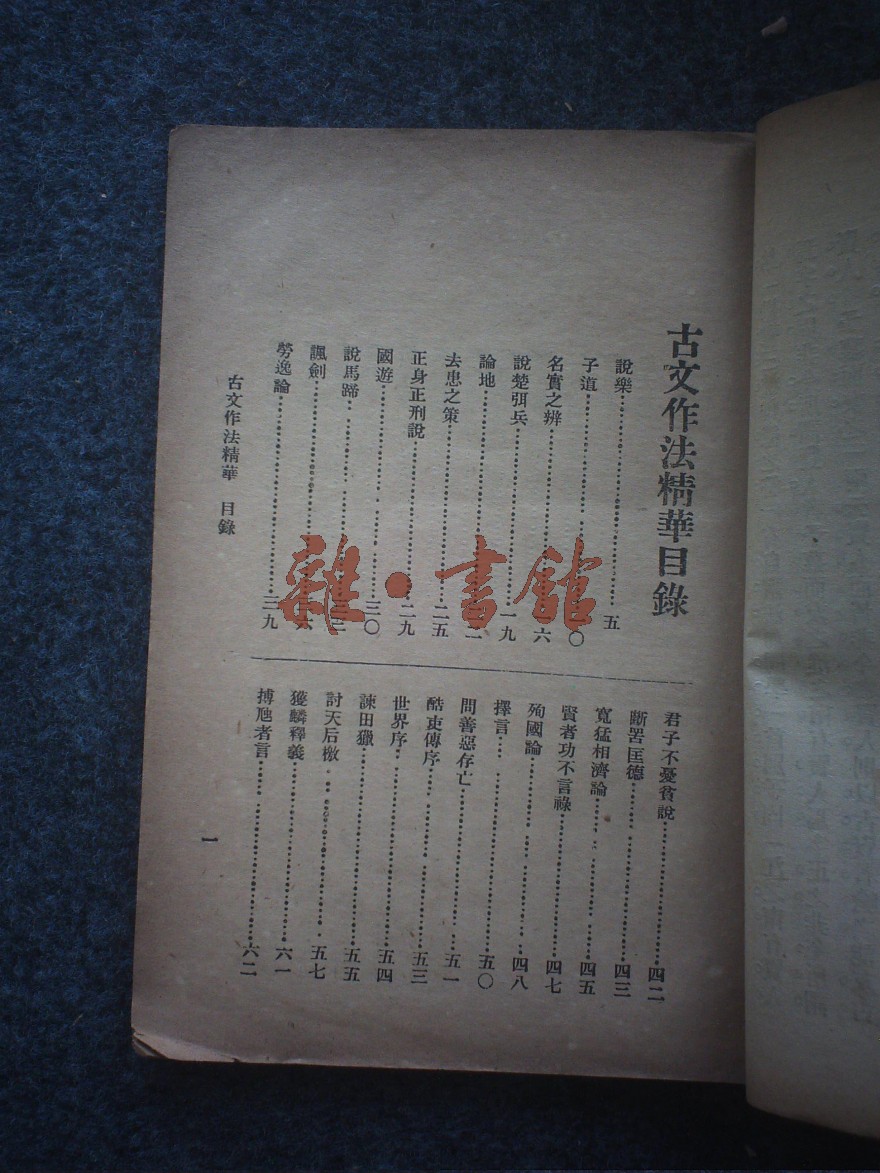 古文作法精華目錄
說樂……五
子道……一〇
名實之辨……一六
說楚弭兵……一九
論地……二
去患之策……二五
正身正刑說……二九
國遊……三〇
說馬蹄……三
諷劍……三
勞逸論……三九
君子不憂貧說……四二
斷罟匡德……四三
寬猛相濟論……四五
賢者功不言祿……四七
殉國論……四八
擇言……五〇
問善惡存亡……五一
酷吏傳序……五三
世界序……五四
諫田獵……五五
討天后檄……五七
獲麟釋義……六一
搏虺者言……六二
古文作法精華 目錄
一
雜·書館